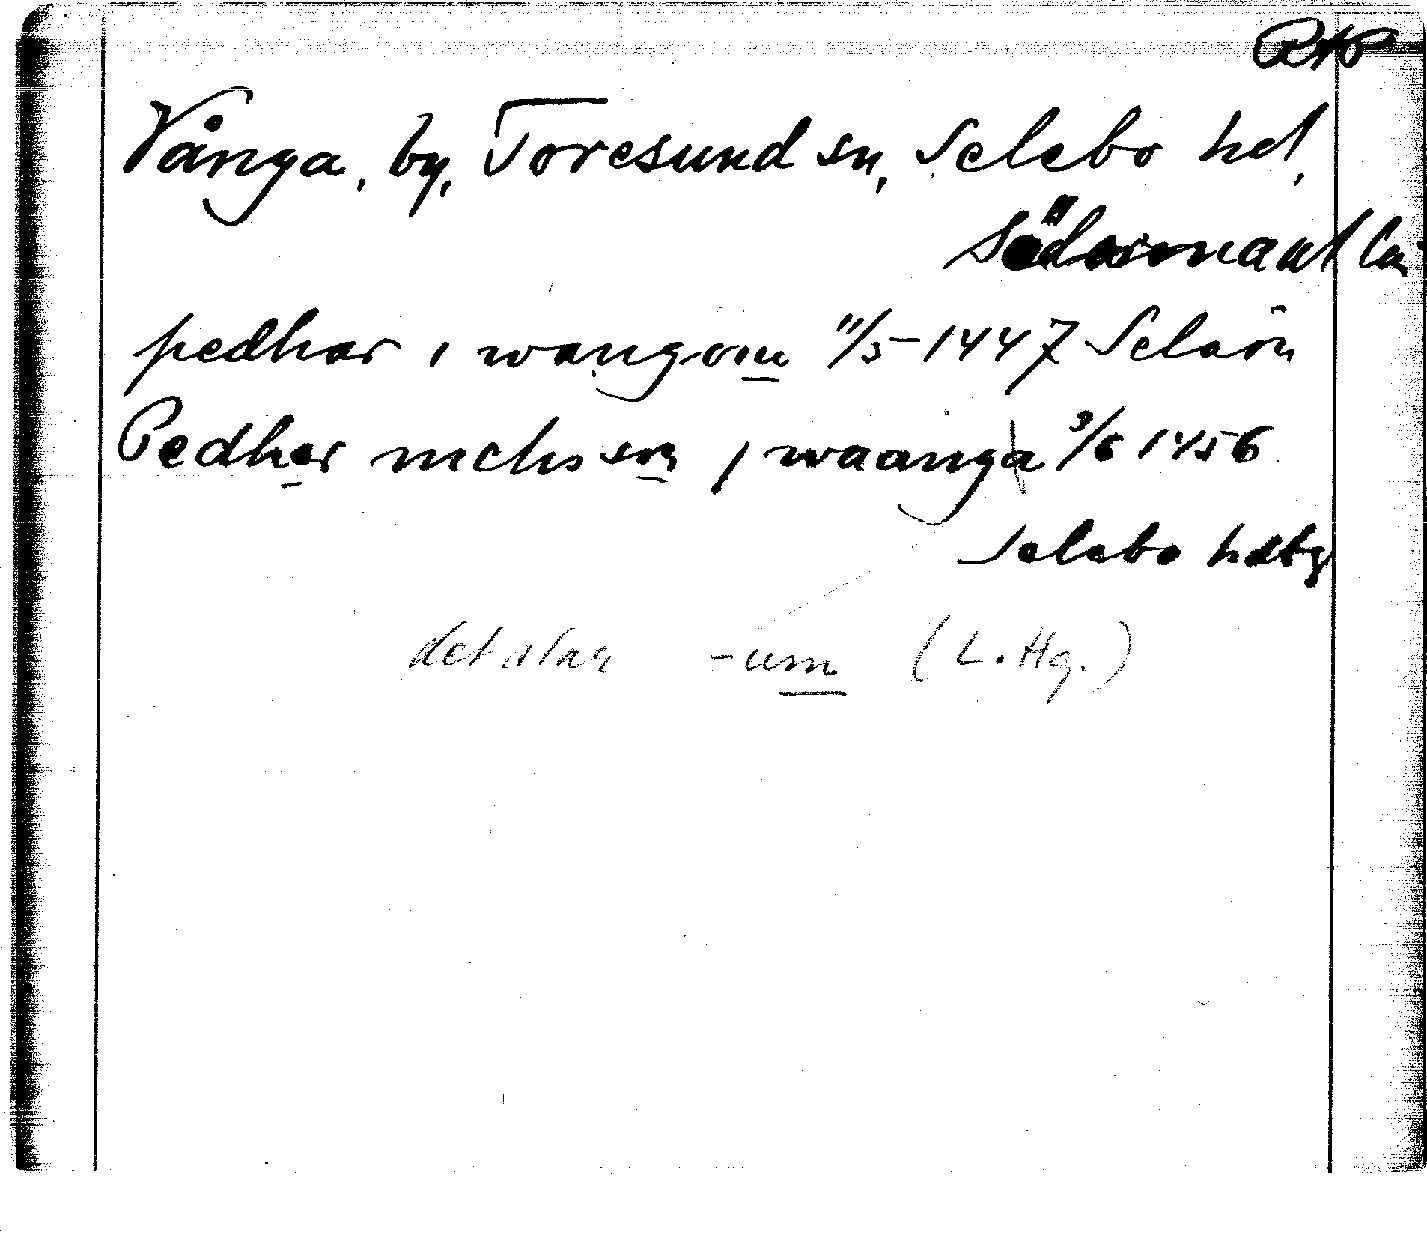 RAP
Vånga, by, Toresund sn, Selebo hd,
Södermanl län
pedhar i wangom 11/5-1447 Selaön
Pedher niclisson j waanga 3/6 1456
Selebo hdbg
-um (L. Hg.)